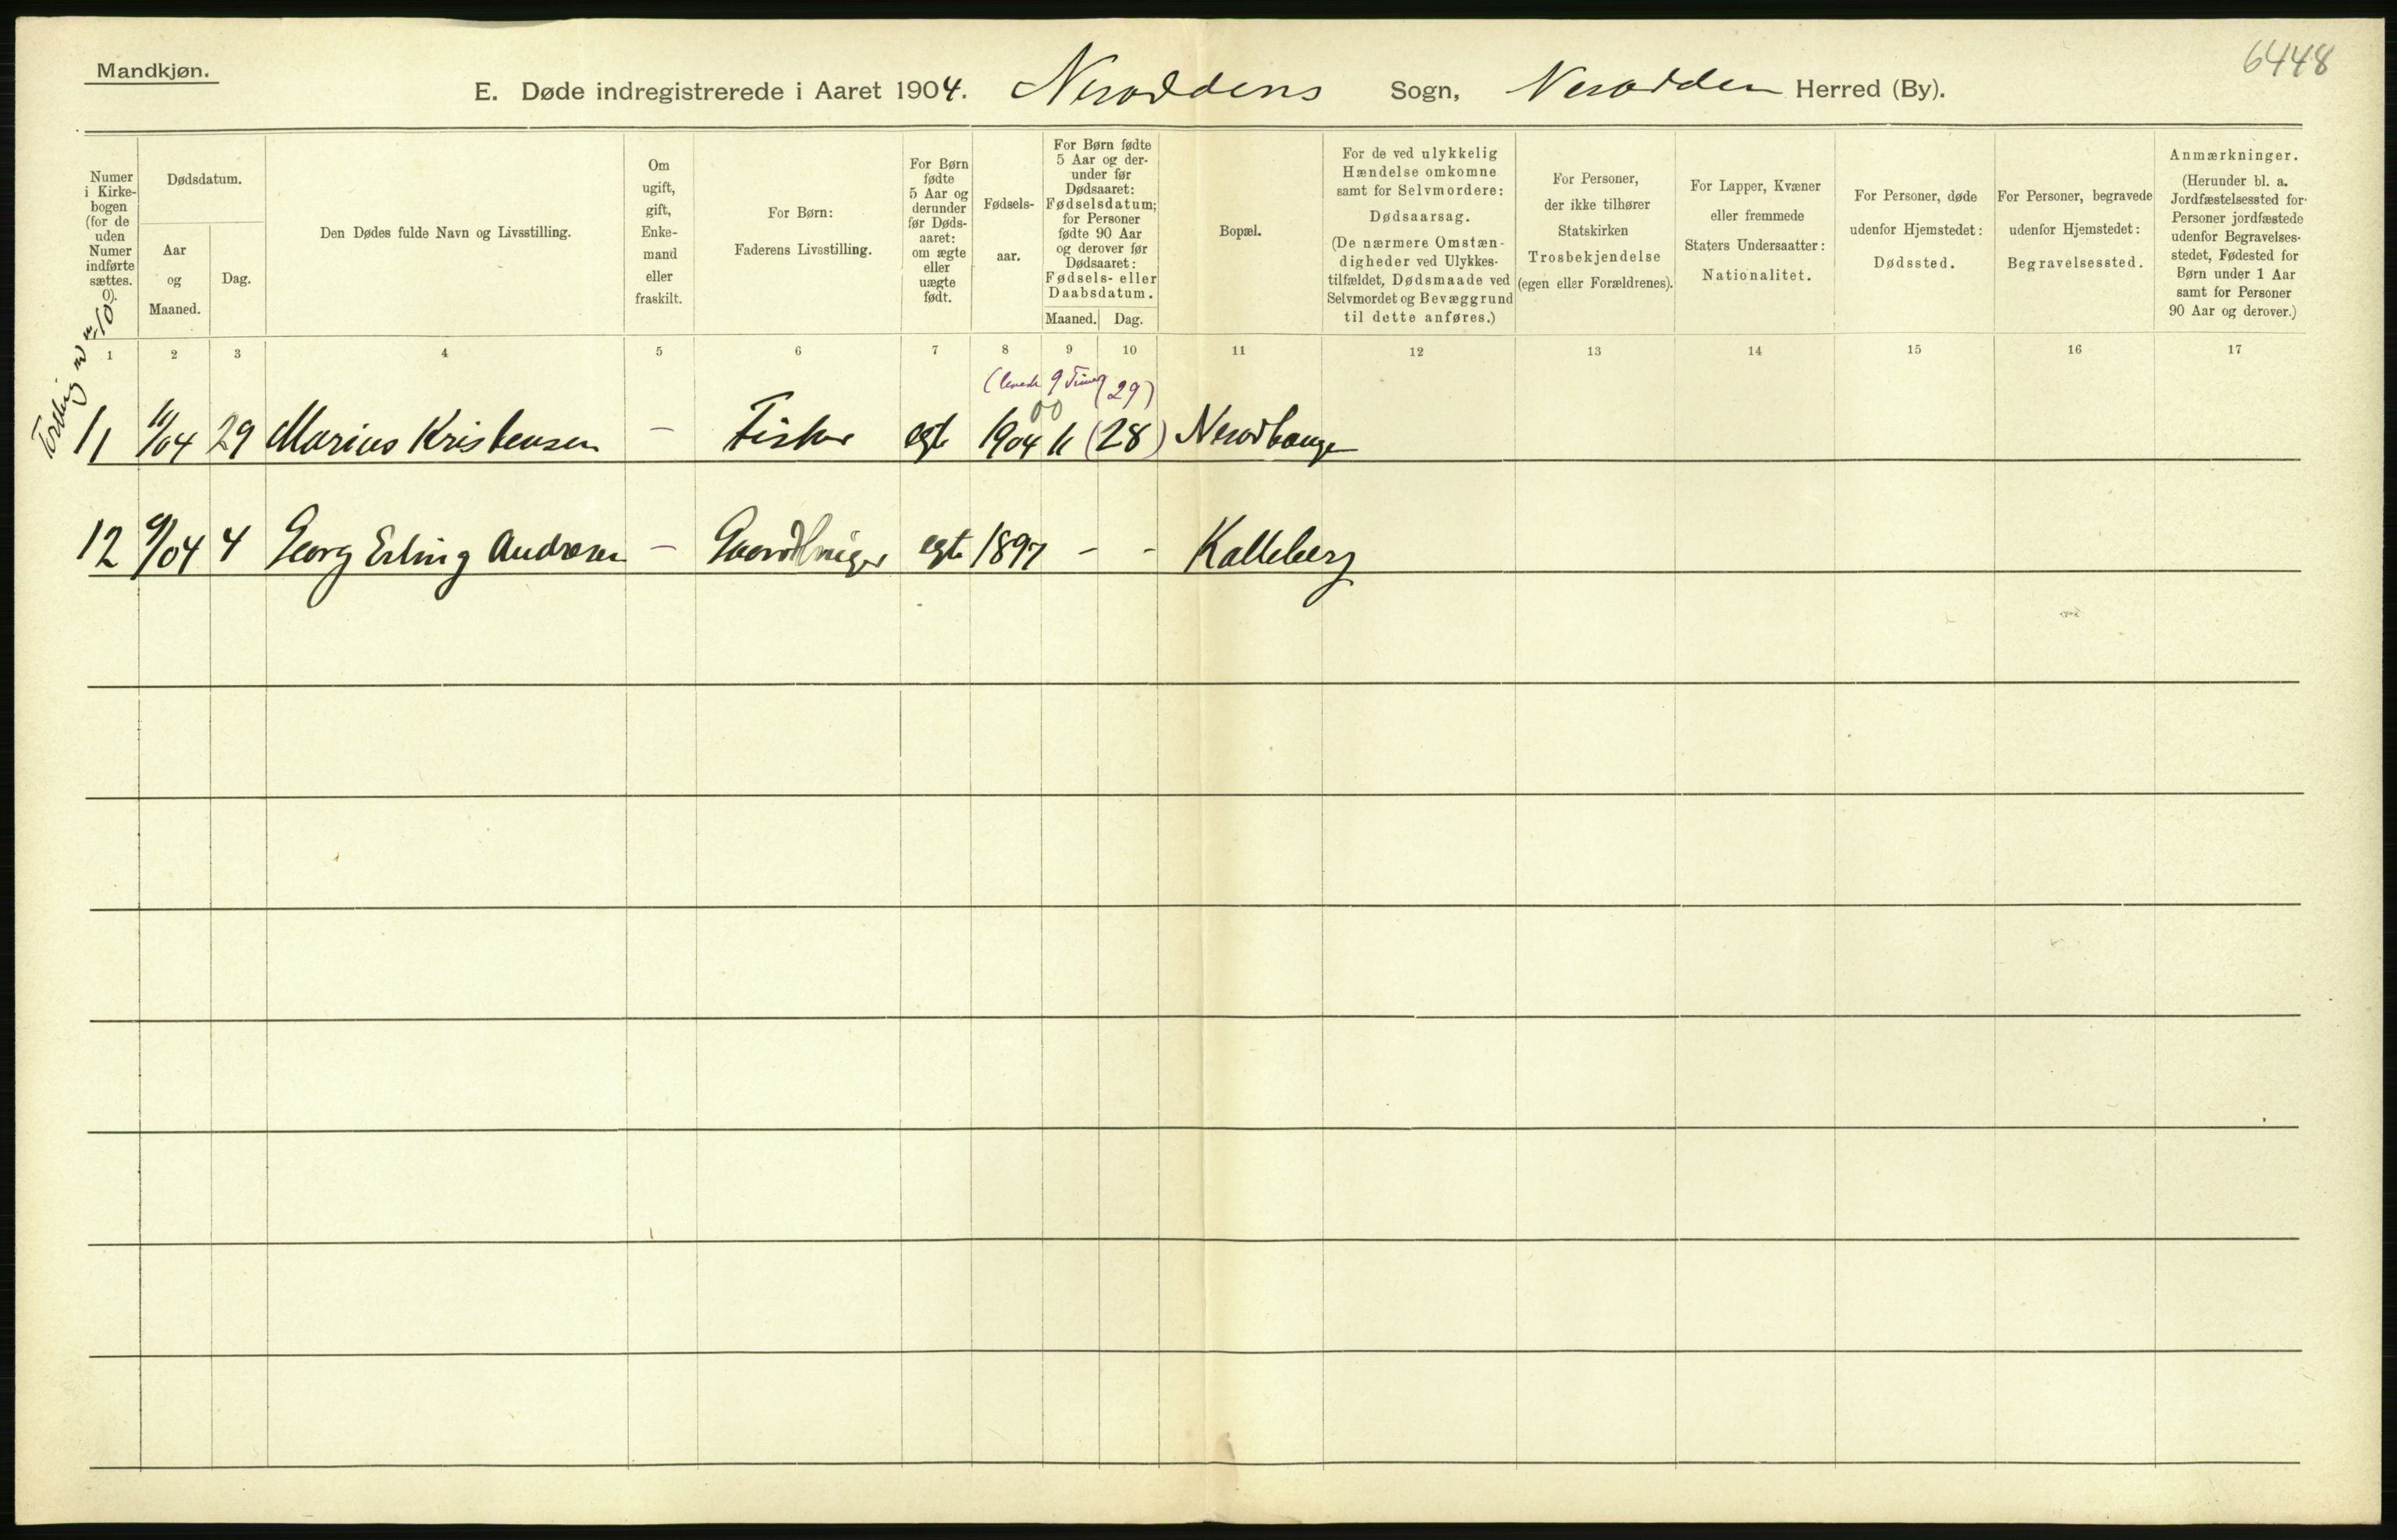 Mandkjøn.
6448
E. Døde indregistrerede i Aaret 1904. Nesoddens Sogn, Nesodden Herred (By).
Numer i Kirkebogen (for de uden Numer indførte sættes. 0).
Dødsdatum.
Aar og Maaned.
Dag.
Den Dødes fulde Navn og Livsstilling.
Om ugift, gift, Enkemand eller fraskilt.
For Børn: Faderens Livsstilling.
For Børn fødte 5 Aar og derunder før Dødsaaret: om ægte eller uægte født.
Fødselsaar.
For Børn fødte 5 Aar og derunder før Dødsaaret: Fødselsdatum; for Personer fødte 90 Aar og derover før Dødsaaret: Fødsels- eller Daabsdatum.
Maaned. Dag.
Bopæl.
For de ved ulykkelig Hændelse omkomne samt for Selvmordere: Dødsaarsag. (De nærmere Omstændigheder ved Ulykkestilfældet, Dødsmaade ved Selvmordet og Bevæggrund til dette anføres.)
For Personer, der ikke tilhører Statskirken Trosbekjendelse (egen eller Forældrenes).
For Lapper, Kvæner eller fremmede Staters Undersaatter: Nationalitet.
For Personer, døde udenfor Hjemstedet: Dødssted.
For Personer, begravede udenfor Hjemstedet: Begravelsessted.
Anmærkninger. (Herunder bl. a. Jordfæstelsessted for Personer jordfæstede udenfor Begravelsesstedet, Fødested for Børn under 1 Aar samt for Personer 90 Aar og derover.)
1 2 3 4 5 6 7 8 9 10 11 12 13 14 15 16 17
(levede 9 Timer) (29)
00
11 11/04 29 Marius Kristensen – Fisker egte 1904 11 (28) Nesodtangen
12 9/04 4 Georg Erling Andresen – Gaardbruger egte 1897 - - Kalleberg